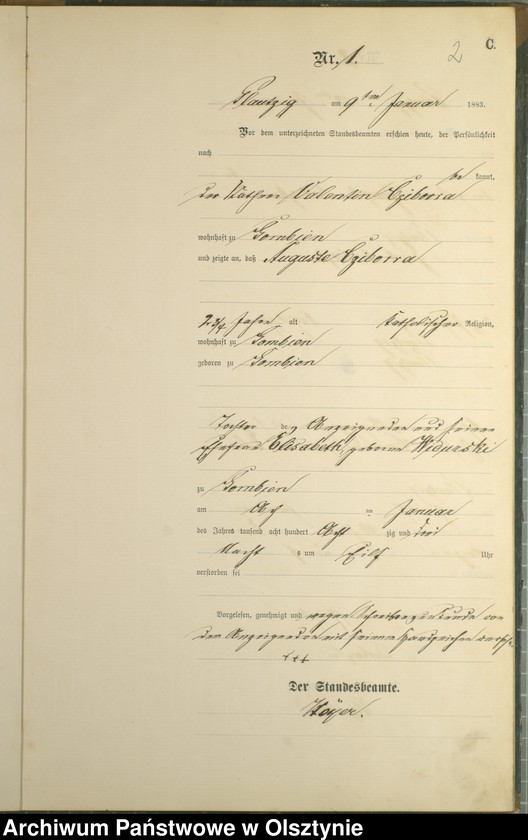 2
C.
Nr. 1.
Plautzig am 9ten Januar 1883.
Vor dem unterzeichneten Standesbeamten erschien heute, der Persönlichkeit
nach
be kannt,
der Käthner Valentin Cziborra
wohnhaft zu Gombien
und zeigte an, daß Auguste Cziborra
2 3/4 Jahre alt Katholischer Religion,
wohnhaft zu Gombien
geboren zu Gombien
Tochter des Anzeigenden und seiner
Ehefrau Elisabeth, geborne
zu Gombien
am Acht ten Januar
des Jahres tausend acht hundert Acht zig und drei
Nacht s um Eilf Uhr
verstorben sei
Vorgelesen, genehmigt und wegen Schreibensunkunde von
dem Anzeigenden mit seinem Handzeichen
+++
Der Standesbeamte.
Archiwum Państwowe w Olsztynie